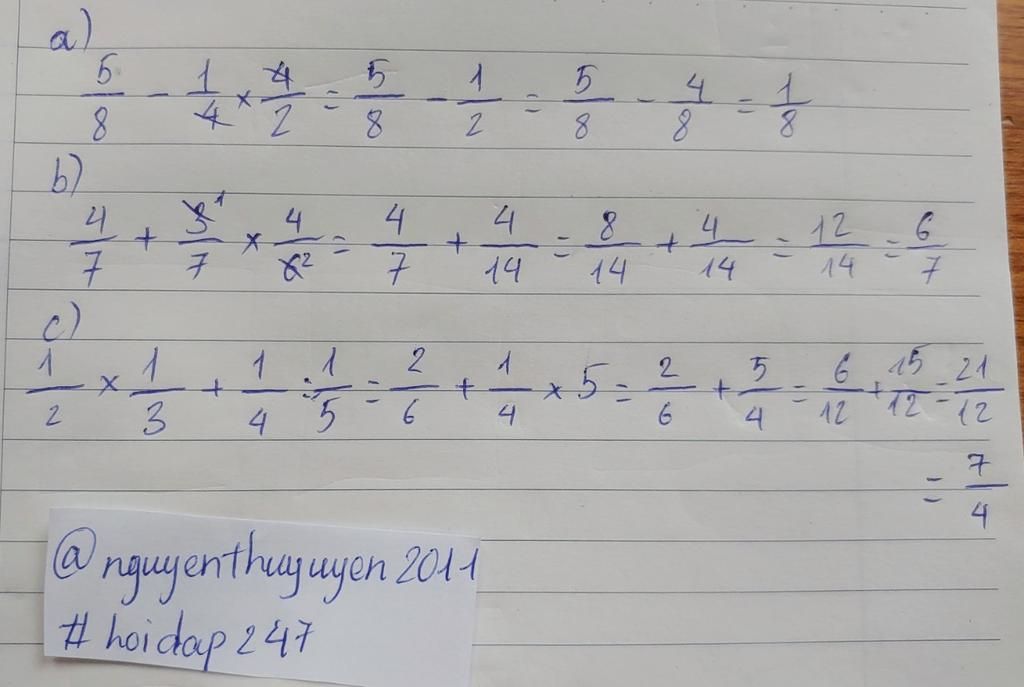 a)
5/8 - 1/4 × 4/2 = 5/8 - 1/2 = 5/8 - 4/8 = 1/8
b)
4/7 + 3¹/7 × 4/6² = 4/7 + 4/14 = 8/14 + 4/14 = 12/14 = 6/7
c)
1/2 × 1/3 + 1/4 : 1/5 = 2/6 + 1/4 × 5 = 2/6 + 5/4 = 6/12 + 15/12 = 21/12
= 7/4
@nguyenthuyuyen2011
# hoidap247